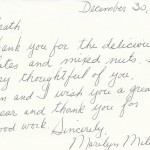 December 30,
eath
hank you for the delicious
ates and mixed nuts.
ry thoughtful of you,
n and I wish you a great
ear and thank you for
ood work. Sincerely,
Marilyn